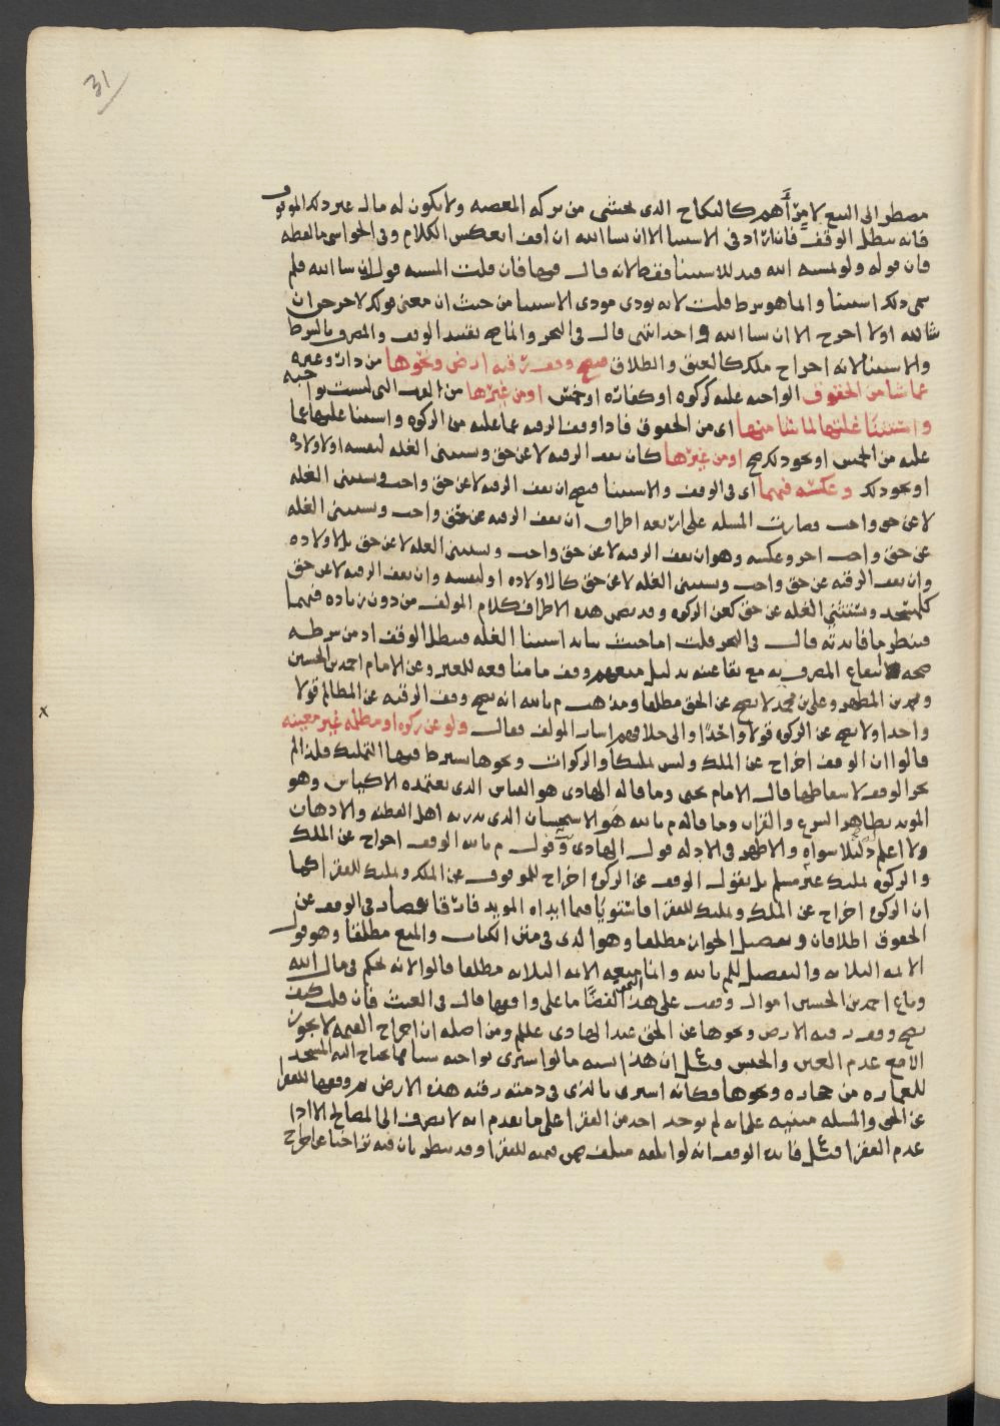 31
مضطر الى البيع لامرٍ أهم كالنكاح الذي يخشى من تركه المعصيه ولا يكون له مال غير ذلك الموقوف
فانه يبطل الوقف فان زاد في الاستثنا الا ان شا الله ان اقف انعكس الكلام وفي الحواشي ما لفظه
فان قوله ولو لمشيه الله قيد للاستثنا فقط لانه قال فيها فان قلت المشيه قول ان شا الله فلم
سمى ذلك استثنا وانما هو شرط قلت لانه يودي مودى الاستثنا من حيث ان معنى قولك لاخرجن ان
شا الله اولا اخرج الا ان شا الله واحد انتهى قال في البحر والناصح تقييد الوقف والمصرف بالشرط
والاستثنا لانه اخراج ملك كالعتق والطلاق فيصح وقف رقبه ارض ونحوها من دار وغيره
عما شا من الحقوق الواجبه عليه كزكوه او كفاره او خمس او من غيرها من القرب التي ليست بواجبه
واستثنا غلتها لما شا منها اي من الحقوق فاذا وقف الرقبه عما عليه من الزكوه واستثنا غلتها عما
عليه من الخمس او نحو ذلك صح او من غيرها كان يقف الرقبه لا عن حق ويستثنى الغله لنفسه او لاولاده
او نحو ذلك وعكسه فيهما اي في الوقف والاستثنا فيصح ان يقف الرقبه لا عن حق واجب ويستثنى الغله
لا عن حق واجب فصارت المسله على اربعه اطراف ان يقف الرقبه عن حق واجب ويستثنى الغله
عن حق واجب اخر وعكسه وهو ان يقف الرقبه لا عن حق واجب ويستثنى الغله لا عن حق بل لاولاده
وان يقف الرقبه عن حق واجب ويستثنى الغله لا عن حق كالاولاده او لنفسه وان يقف الرقبه لا عن حق
كلمسجد ويستثني الغله عن حق كعن الزكوه وقد تضمن هذه الاطراف كلام المولف من دون زياده فيهما
فينظر ما فايدته قال في البحر قلت اما حيث استثنا الغله فيبطل الوقف اذ من شرطه
صحه انتفاع المصرف به مع بقا عينه بدليل منعهم وقف ما منافعه للغير وعن الامام احمد بن الحسين
ومحمد بن المطهر وعلي بن محمد لا يصح عن الحق مطلقا ومذهب م بالله انه يصح وقف الرقبه عن المظالم قولا
واحدا ولا يصح عن الزكوه قولا واحدًا والى خلافهم اشار المولف فقال ولو عن زكوه او مظلمه غير معينه
قالوا ان الوقف اخراج عن الملك وليس تمليكا والزكوات ونحوها يشترط فيها التمليك فلذا لم
يجز الوقف لاسقاطها قال الامام يحيى وما قاله الهادي هو القياس الذي يعتمده الاكياس وهو
المويد بظاهر الشرع والقران وما قاله م بالله هو الاستحسان الذي يدريه اهل الفطنه والاذهان
ولا اعلم دليلا سواه والاظهر في الادله قول الهادي وقول م بالله الوقف اخراج عن الملك
والزكوه تمليك غير مسلم بل نقول الوقف عن الزكوه اخراج للموقوف عن الملك وتمليك للفقرا كما
ان الزكوه اخراج عن الملك وتمليك للفقرا فاستويا فيما ابداه المويد فارقا فصار في الوقف عن
الحقوق اطلاقان وتفصيل الجواز مطلقا وهو الذي في متن الكتاب والمنع مطلقا وهو قول
الايمه الثلاثه والتفصيل للم بالله والايمه الثلاثه مطلقا قالوا لانه تحكم في مال الله
وباع احمد بن الحسين اموالا وقفت على هذا القضا ما على واقفها قال في الغيث فان قلت كيف
يصح وقف رقبه الارض ونحوها عن الحق عند الهادي عللم ومن اصله ان اخراج القيمه لا يجوز
الا مع عدم العين والجنس قيل ان هذا اشبه ما لو اشترى بواجبه شيا مما يحتاج اليه المسجد
للعماره من حجاره ونحوها فكانه اشترى بالذي في ذمته رقبه هذه الارض ثم وقفها للفقرا
عن الحق والمسله مبنيه على انه لم يوجد احد من الفقرا على ما تقدم انه لا يصرف الى المصالح الا اذا
عدم الفقرا قيل فايده الوقف انه لو اتلفه متلف ضمن قيمته للفقرا وقد ينظر بان فيه تراخيا عن اخراج
x